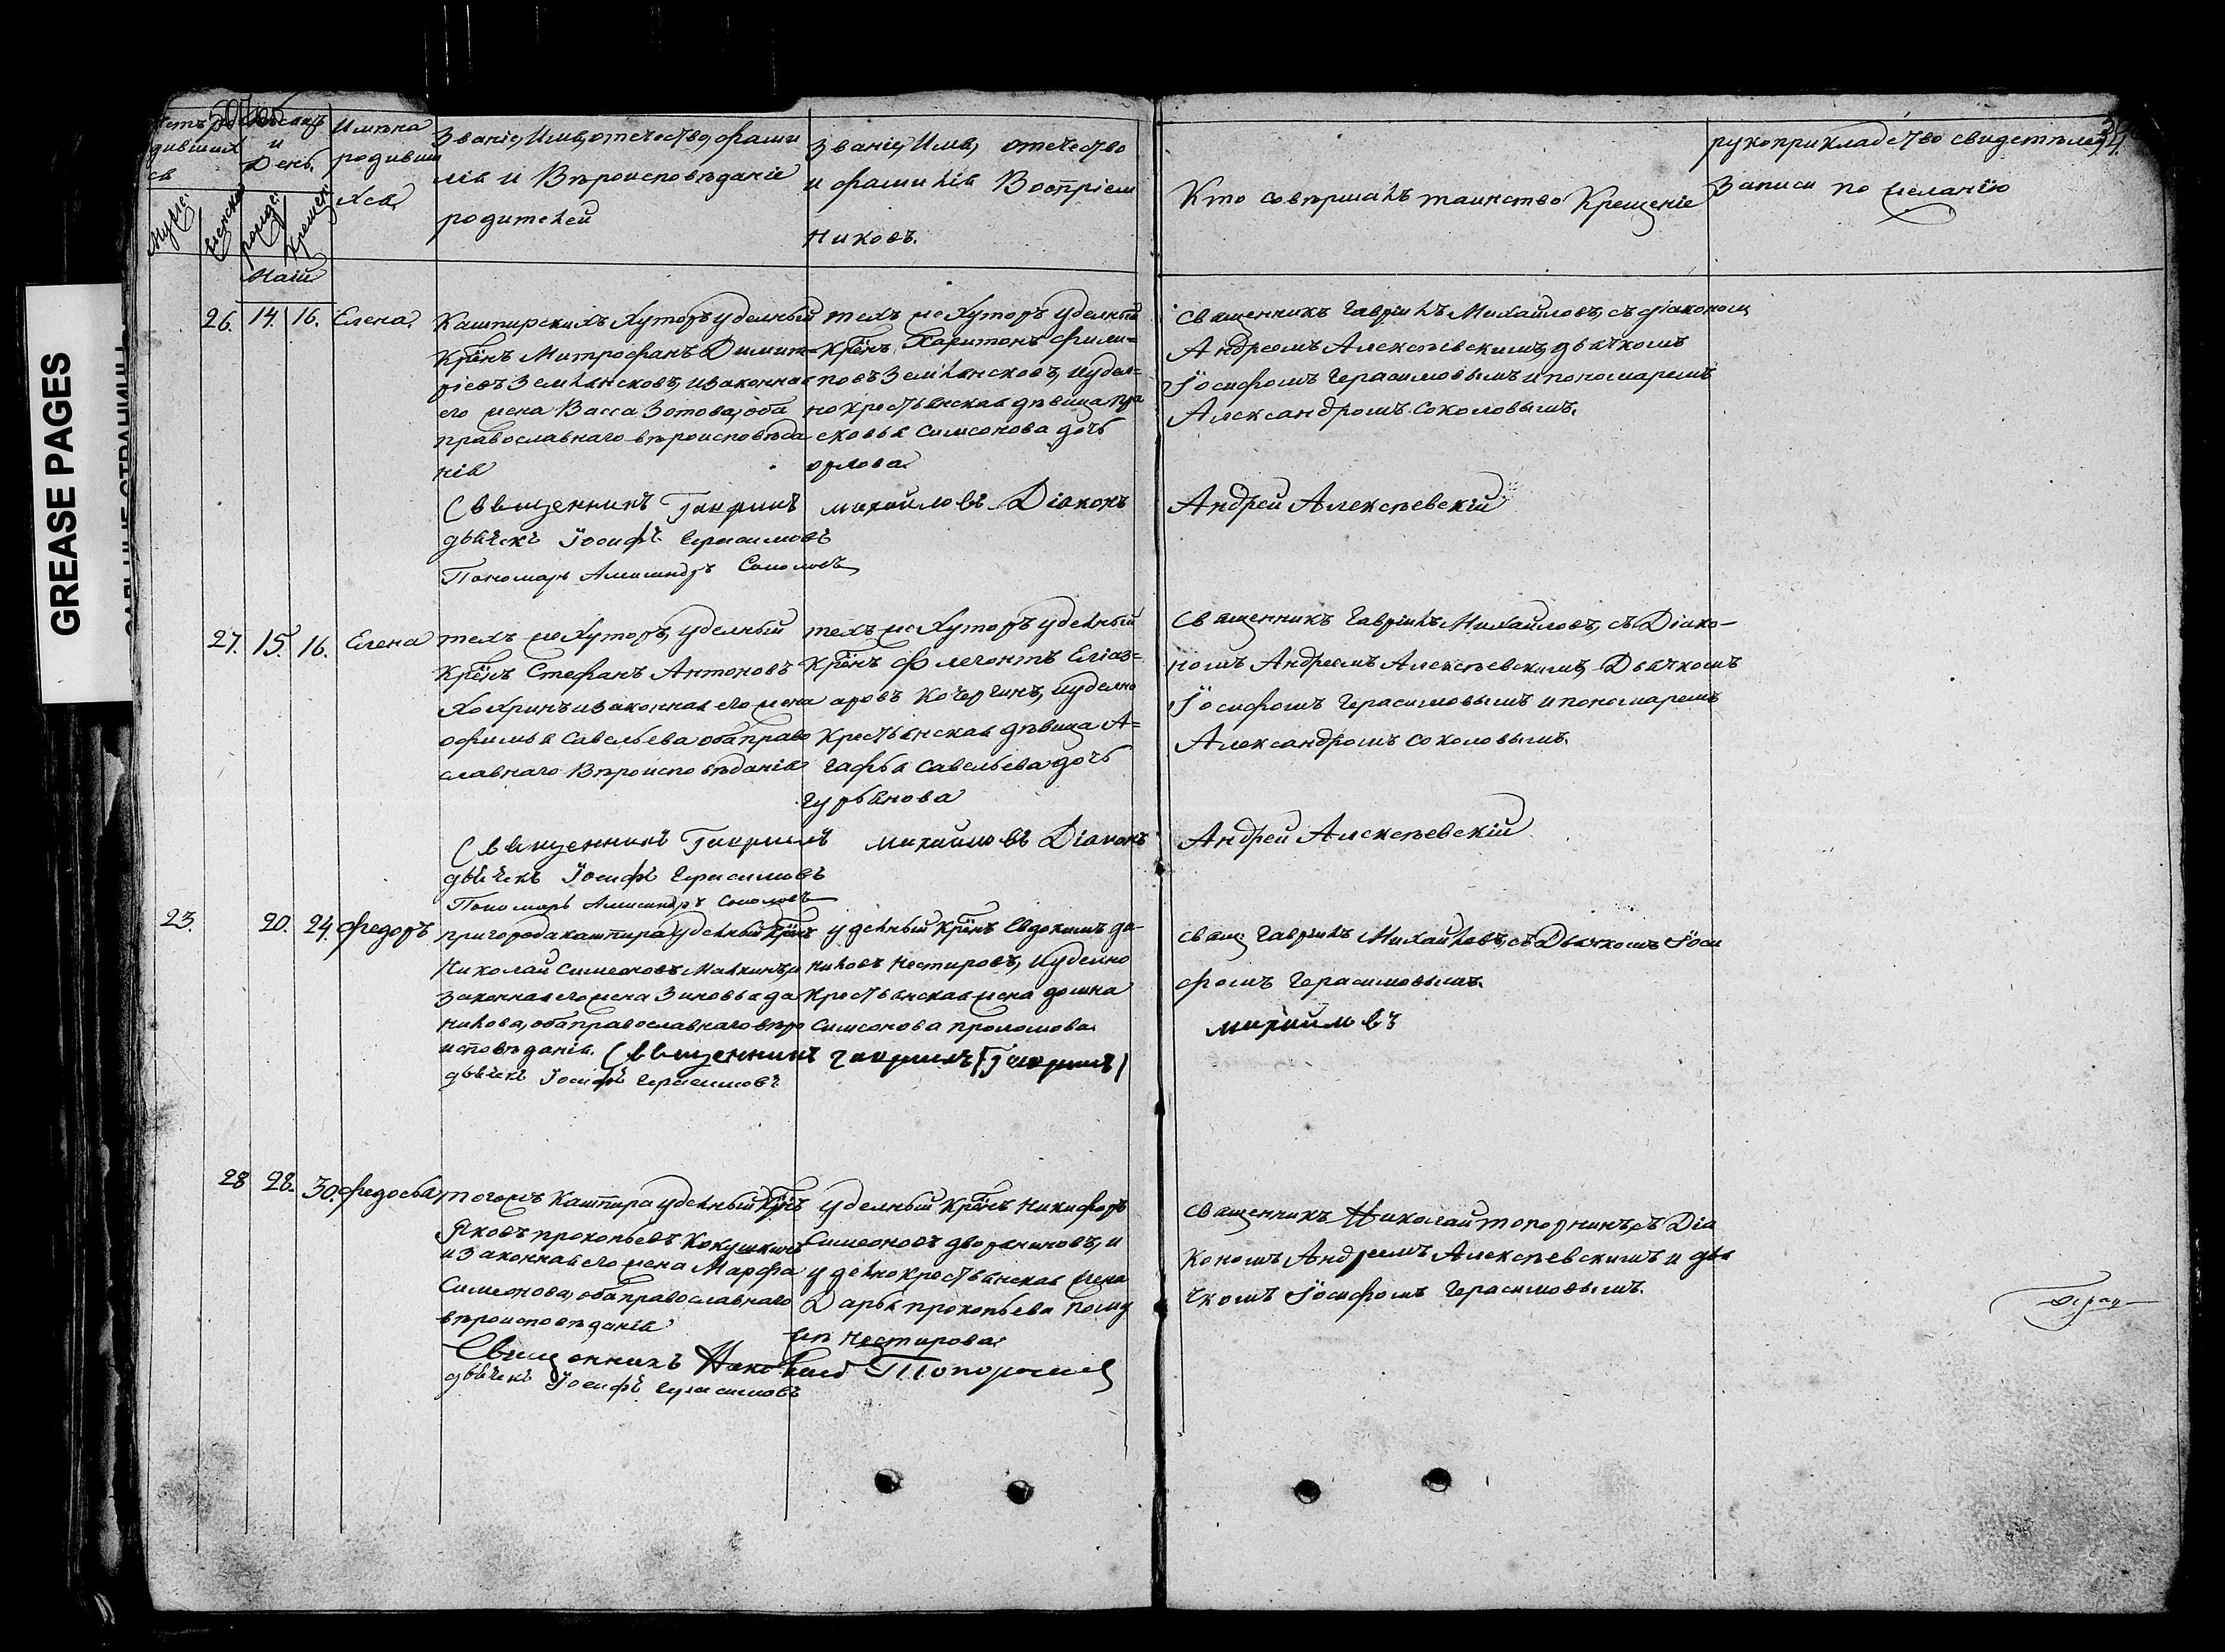 GREASE PAGES
Счетъ родившихся
Мѣсяцъ и День.
Имѣна родившихся
Званіе, Имя, отечество, фамилія и Вѣроисповѣданіе родителей
Званіе, Имя, отечество и фамилія Воспріемниковъ.
Кто совѣршалъ таинство Крещеніе
рукоприкладство свидетѣлей
записи по желанію
Муже:
Женска
рожде:
Крещен:
Маій
26. 14. 16. Елена.
Кашпирскихъ Хуторъ уделный
Крѣнъ Митрофанъ Димит-
ріевъ Земсковъ, изаконная
его жена Васса Зотова, оба
православнаго вѣроисповѣда
нія
техъ же Хуторъ уделный
Крѣнъ Харитонъ Фили-
повъ Земсковъ, иудел-
нокрестьянская дѣвица Пра
сковья Симеонова дочь
орлова
священникъ Гавріилъ Михайловъ, съ діакономъ
Андреемъ Алексѣевскимъ, дьячкомъ
Іосифомъ Герасимовымъ и пономаремъ
Александромъ Соколовымъ.
Священникъ Гавриилъ Михайловъ Діаконъ Андрей Алексѣевскій
дьячекъ Іосифъ Герасимовъ
Пономарь Александръ Соколовъ
27. 15. 16. Елена
техъ же Хуторъ, уделный
Крѣнъ Стефанъ Антоновъ
Хохринъ изаконная его жена
офимья Савельева оба право
славнаго Вѣроисповѣданія
техъ же Хуторъ уделный
Крѣнъ Флегонтъ Еліаз-
аровъ Кочергинъ, иуделно
Крестьянская дѣвица А-
гафья Савельева дочь
гурьянова
священникъ Гавріилъ Михайловъ, съ Діако-
номъ Андреемъ Алексѣевскимъ, Дьячкомъ
Іосифомъ Герасимовымъ и пономаремъ
Александромъ Соколовымъ.
Священникъ Гавриилъ Михайловъ Діаконъ Андрей Алексѣевскій
дьячекъ Іосифъ Герасимовъ
Пономарь Александръ Соколовъ
23. 20. 24. Федоръ
пригорода кашпира уделный Крѣнъ
Николай Симеоновъ Малкинъ, и
законная его жена Зиновья да
нилова, оба православнаго вѣро
исповѣданія.
уделный Крѣнъ Евдокимъ да-
ниловъ Нестировъ, иуделно
Крестьянская жена домна
Симеонова проломова
свящ Гавріилъ Михайловъ, съ Дьячкомъ Іоси
фомъ Герасимовымъ.
Священникъ Гавриилъ (Гавриилъ) Михайловъ
дьячекъ Іосифъ Герасимовъ
28 28. 30. Федосья
тогожъ Кашпира уделный Крѣнъ
Яковъ прокопьевъ Кокушкинъ
изаконная его жена Марфа
Симеонова, оба православнаго
вѣроисповѣданія
уделный Крѣнъ Никифоръ
Симеоновъ дворяниновъ, и
уделнокрестьянская жена
Дарья прокопьева
Нестирова
священникъ Николай топорнинъ, съ Діа
кономъ Андреемъ Алексѣевскимъ и дья
чкомъ Іосифомъ Герасимовымъ.
Священникъ Николай Топорнинъ
дьячекъ Іосифъ Герасимовъ